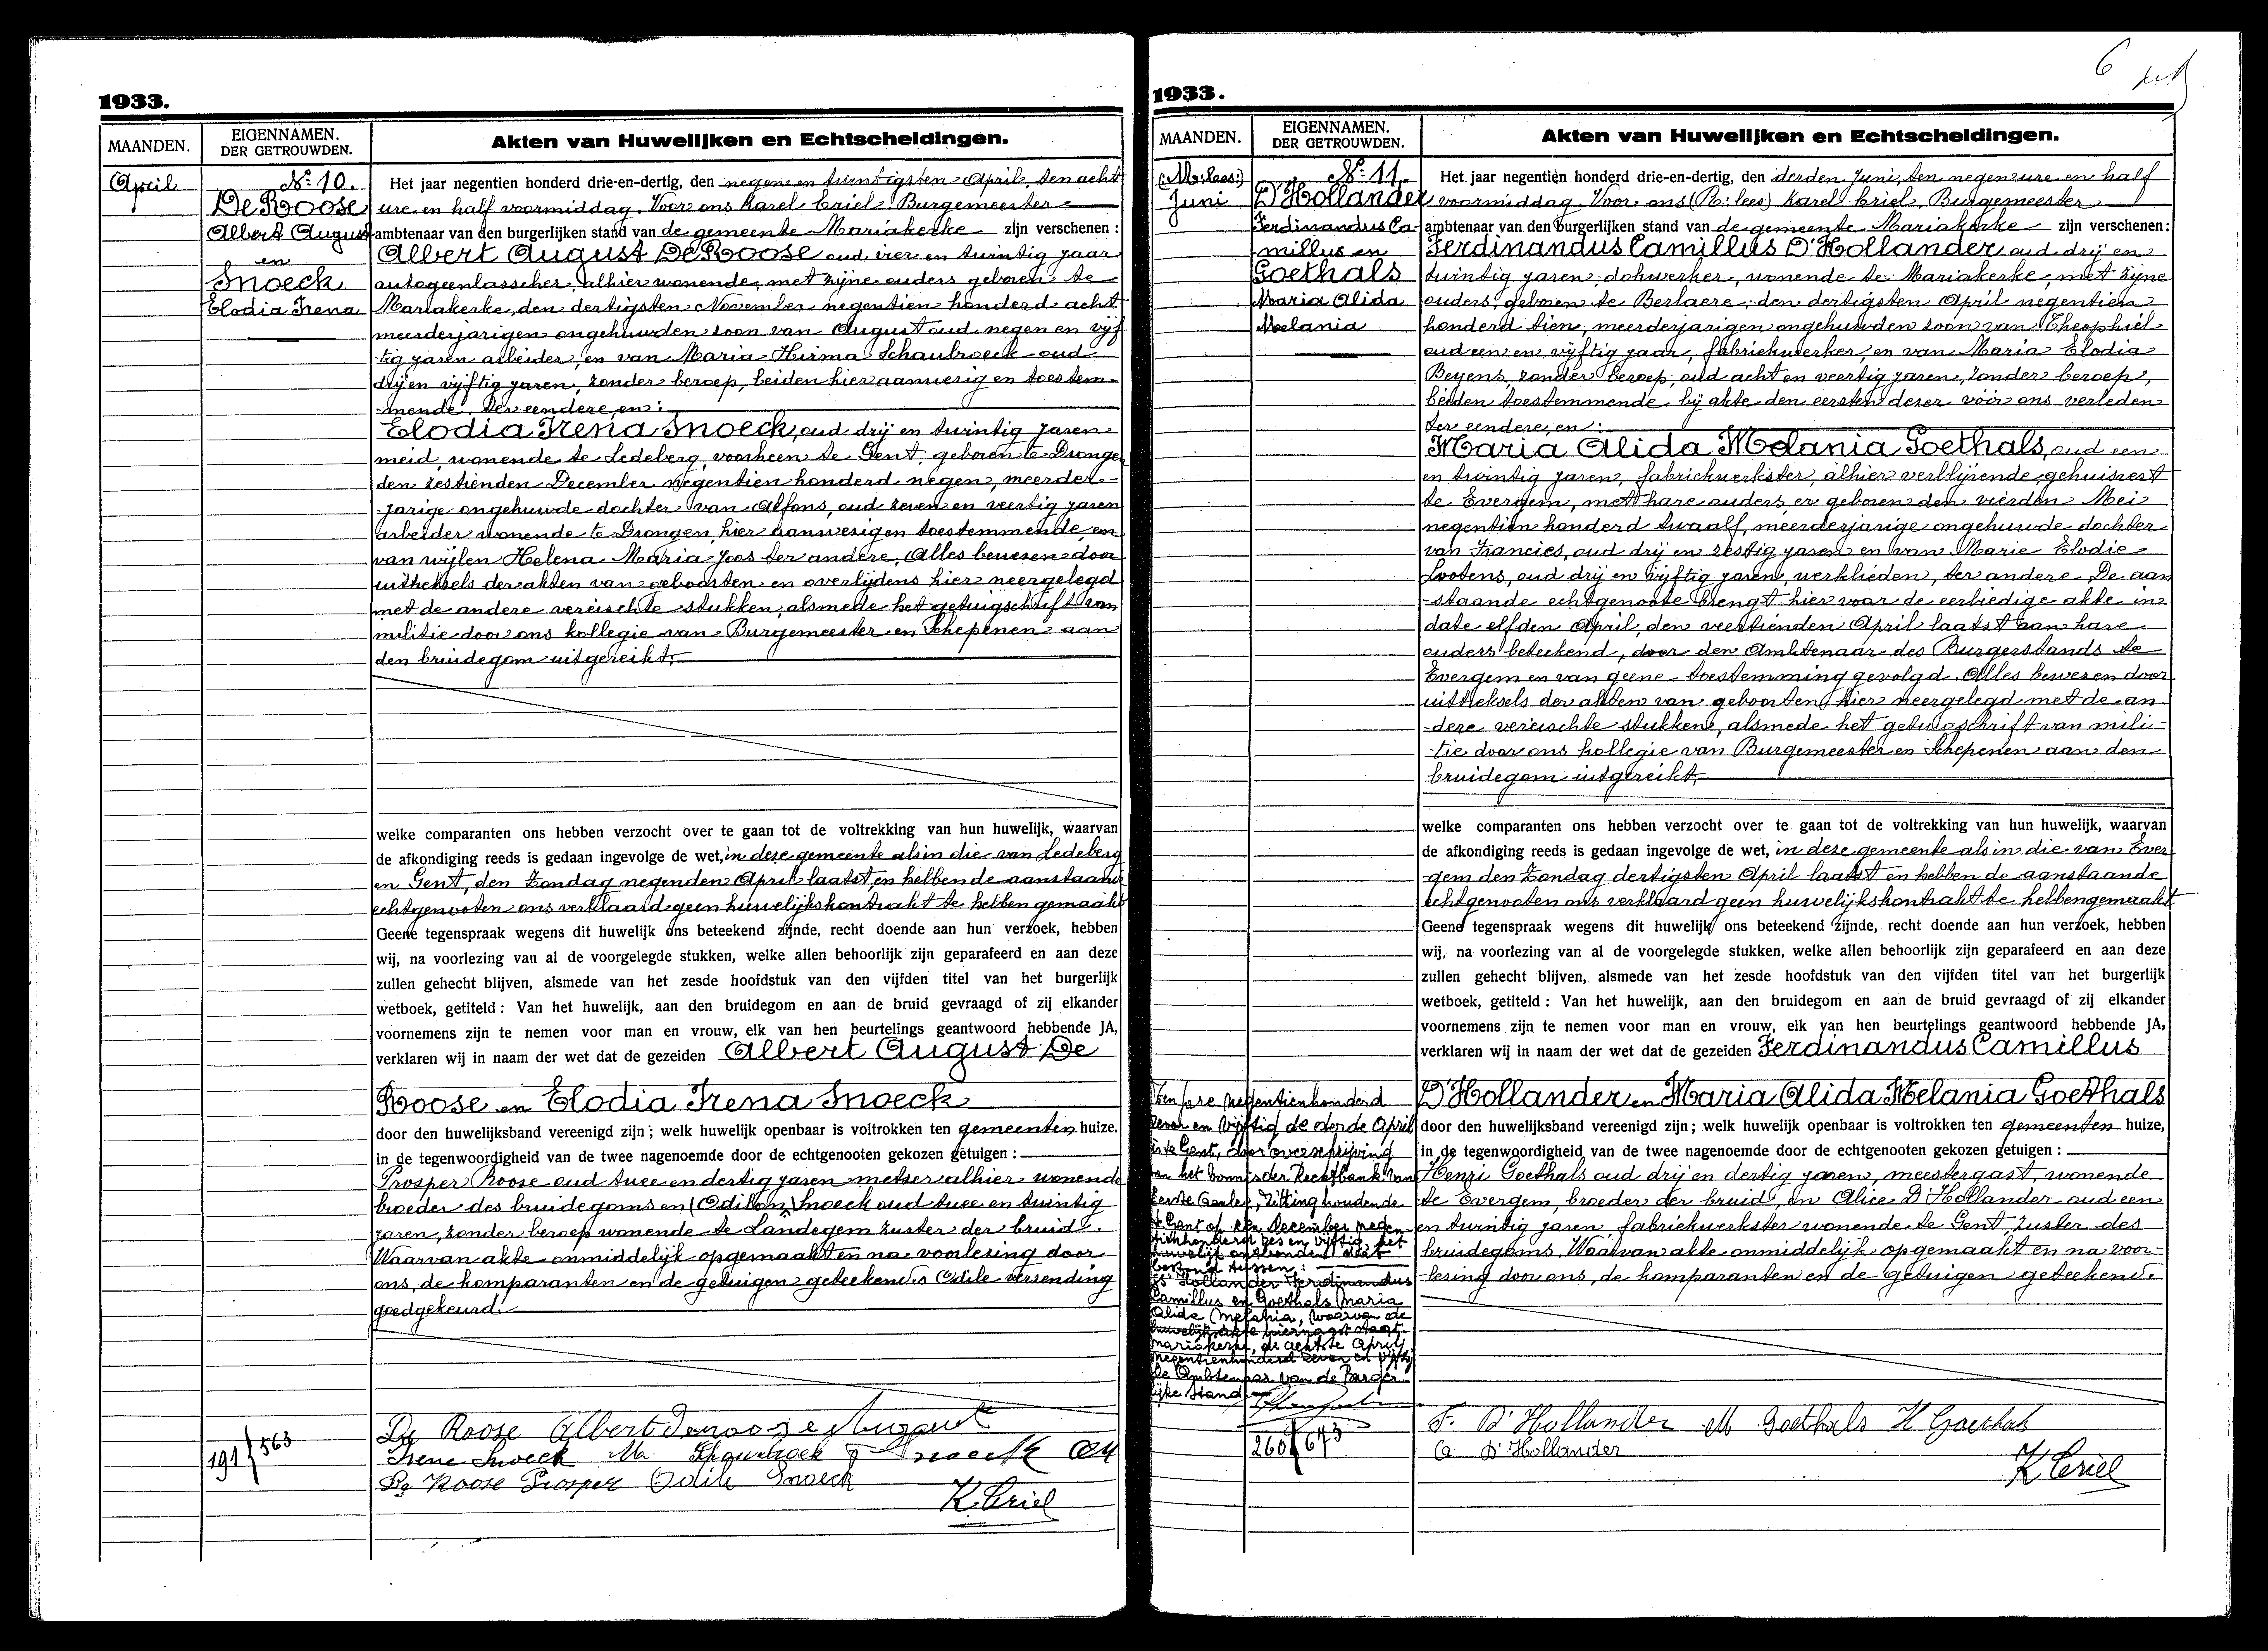 1933.
MAANDEN.
EIGENNAMEN.
DER GETROUWDEN.
Akten van Huwelijken en Echtscheidingen.
April
No. 10.
De Roose
Albert August
en
Snoeck
Elodia Irena
Het jaar negentien honderd drie-en-dertig, den negen en twintigsten April, ten acht
ure en half voormiddag. Voor ons Karel Criel Burgemeester
ambtenaar van den burgerlijken stand van de gemeente Mariakerke zijn verschenen :
Albert August De Roose oud vier en twintig jaar
autogeenlasscher, alhier wonende, met zijne ouders geboren te
Mariakerke, den dertigsten November negentien honderd acht
meerderjarigen ongehuwden zoon van August oud negen en vijf
tig jaren arbeider, en van Maria Hirma Schaubroeck oud
drij en vijftig jaren, zonder beroep, beiden hier aanwezig en toestem-
mende ter eendere, en :
Elodia Irena Snoeck, oud drij en twintig jaren
meid, wonende te Ledeberg, voorheen te Gent, geboren te Drongen
den zestienden December negentien honderd negen, meerder-
jarige ongehuwde dochter van Alfons, oud zeven en veertig jaren
arbeider wonende te Drongen, hier aanwezig en toestemmende, en
van wijlen Helena Maria Joos ter andere. Alles bewezen door
uittreksels der akten van geboorten en overlijdens hier neergelegd
met de andere vereischte stukken, alsmede het getuigschrift van
militie door ons kollegie van Burgemeester en Schepenen aan
den bruidegom uitgereikt.
welke comparanten ons hebben verzocht over te gaan tot de voltrekking van hun huwelijk, waarvan
de afkondiging reeds is gedaan ingevolge de wet, in deze gemeente als in die van Ledeberg
en Gent, den Zondag negenden April laatst, en hebben de aanstaande
echtgenooten ons verklaard geen huwelijkskontrakt te hebben gemaakt
Geene tegenspraak wegens dit huwelijk ons beteekend zijnde, recht doende aan hun verzoek, hebben
wij, na voorlezing van al de voorgelegde stukken, welke allen behoorlijk zijn geparafeerd en aan deze
zullen gehecht blijven, alsmede van het zesde hoofdstuk van den vijfden titel van het burgerlijk
wetboek, getiteld : Van het huwelijk, aan den bruidegom en aan de bruid gevraagd of zij elkander
voornemens zijn te nemen voor man en vrouw, elk van hen beurtelings geantwoord hebbende JA,
verklaren wij in naam der wet dat de gezeiden Albert August De
Roose en Elodia Irena Snoeck
door den huwelijksband vereenigd zijn ; welk huwelijk openbaar is voltrokken ten gemeenten huize,
in de tegenwoordigheid van de twee nagenoemde door de echtgenooten gekozen getuigen :
Prosper Roose oud twee en dertig jaren metser alhier wonende
broeder des bruidegoms en (Odilon) Snoeck oud twee en twintig
jaren, zonder beroep wonende te Landegem zuster der bruid.
Waarvan akte onmiddelijk opgemaakt en na voorlesing door
ons, de komparanten en de getuigen geteekend. Odile verzending
goedgekeurd.
De Roose Albert
Irene Snoeck
De Roose Prosper Odile Snoeck
K. Criel
191/563
6
1933.
MAANDEN.
EIGENNAMEN.
DER GETROUWDEN.
Akten van Huwelijken en Echtscheidingen.
(M. lees:)
Juni
No. 11.
D'Hollander
Ferdinandus Ca-
millus en
Goethals
Maria Alida
Melania
Het jaar negentien honderd drie-en-dertig, den derden Juni, ten negen ure en half
voormiddag. Voor ons (R. lees) Karel Criel, Burgemeester
ambtenaar van den burgerlijken stand van de gemeente Mariakerke zijn verschenen :
Ferdinandus Camillus D'Hollander oud drij en
twintig jaren, dokwerker, wonende te Mariakerke, met zijne
ouders, geboren te Berlaere, den dertigsten April negentien
honderd tien, meerderjarigen ongehuwden zoon van Theophiel
oud een en vijftig jaar, fabriekwerker, en van Maria Elodia
Beyens, zonder beroep, oud acht en veertig jaren, zonder beroep,
beiden toestemmende bij akte den eersten dezer vóór ons verleden
ter eendere, en :
Maria Alida Melania Goethals, oud een
en twintig jaren, fabriekwerkster, alhier verblijvende, gehuisvest
te Evergem, met hare ouders, er geboren den vierden Mei
negentien honderd twaalf, meerderjarige ongehuwde dochter
van Francies, oud drij en zestig jaren en van Marie Elodie
Lootens, oud drij en vijftig jaren, werklieden, ter andere. De aan
staande echtgenoote brengt hier voor de eerbiedige akte in
date elfden April, den veertienden April laatst aan hare
ouders beteekend, door den Ambtenaar des Burgerstands te
Evergem en van geene toestemming gevolgd. Alles bewezen door
uittreksels der akten van geboorten, hier neergelegd met de an-
dere vereischte stukken, alsmede het getuigschrift van mili-
tie door ons kollegie van Burgemeester en Schepenen aan den
bruidegom uitgereikt.
welke comparanten ons hebben verzocht over te gaan tot de voltrekking van hun huwelijk, waarvan
de afkondiging reeds is gedaan ingevolge de wet, in deze gemeente als in die van Ever
gem den Zondag dertigsten April laatst en hebben de aanstaande
echtgenooten ons verklaard geen huwelijkskontrakt te hebben gemaakt
Geene tegenspraak wegens dit huwelijk ons beteekend zijnde, recht doende aan hun verzoek, hebben
wij, na voorlezing van al de voorgelegde stukken, welke allen behoorlijk zijn geparafeerd en aan deze
zullen gehecht blijven, alsmede van het zesde hoofdstuk van den vijfden titel van het burgerlijk
wetboek, getiteld : Van het huwelijk, aan den bruidegom en aan de bruid gevraagd of zij elkander
voornemens zijn te nemen voor man en vrouw, elk van hen beurtelings geantwoord hebbende JA,
verklaren wij in naam der wet dat de gezeiden Ferdinandus Camillus
D'Hollander en Maria Alida Melania Goethals
door den huwelijksband vereenigd zijn ; welk huwelijk openbaar is voltrokken ten gemeenten huize,
in de tegenwoordigheid van de twee nagenoemde door de echtgenooten gekozen getuigen :
Henri Goethals oud drij en dertig jaren, meestergast, wonende
te Evergem, broeder der bruid, en Alice D'Hollander oud een
en twintig jaren fabriekwerkster wonende te Gent, zuster des
bruidegoms. Waarvan akte onmiddelijk opgemaakt en na voor-
lezing door ons, de komparanten en de getuigen geteekend.
Ten jare negentienhonderd
zeven en vijftig de derde April
is te Gent, door overschrijving
van het vonnis der Rechtbank van
Eerste Aanleg, zitting houdende
te Gent op een December negen
tienhonderd zes en vijftig, het
huwelijk ontbonden dat
bestond tussen :
D'Hollander Ferdinandus
Camillus en Goethals Maria
Alida Melania, waarvan de
huwelijksakte hiernaast staat.
Mariakerke, de achtste April
negentienhonderd zeven en vijftig
De Ambtenaar van de Burger-
lijke Stand
260/673
F. D'Hollander M Goethals H Goethals
A D'Hollander
K Criel